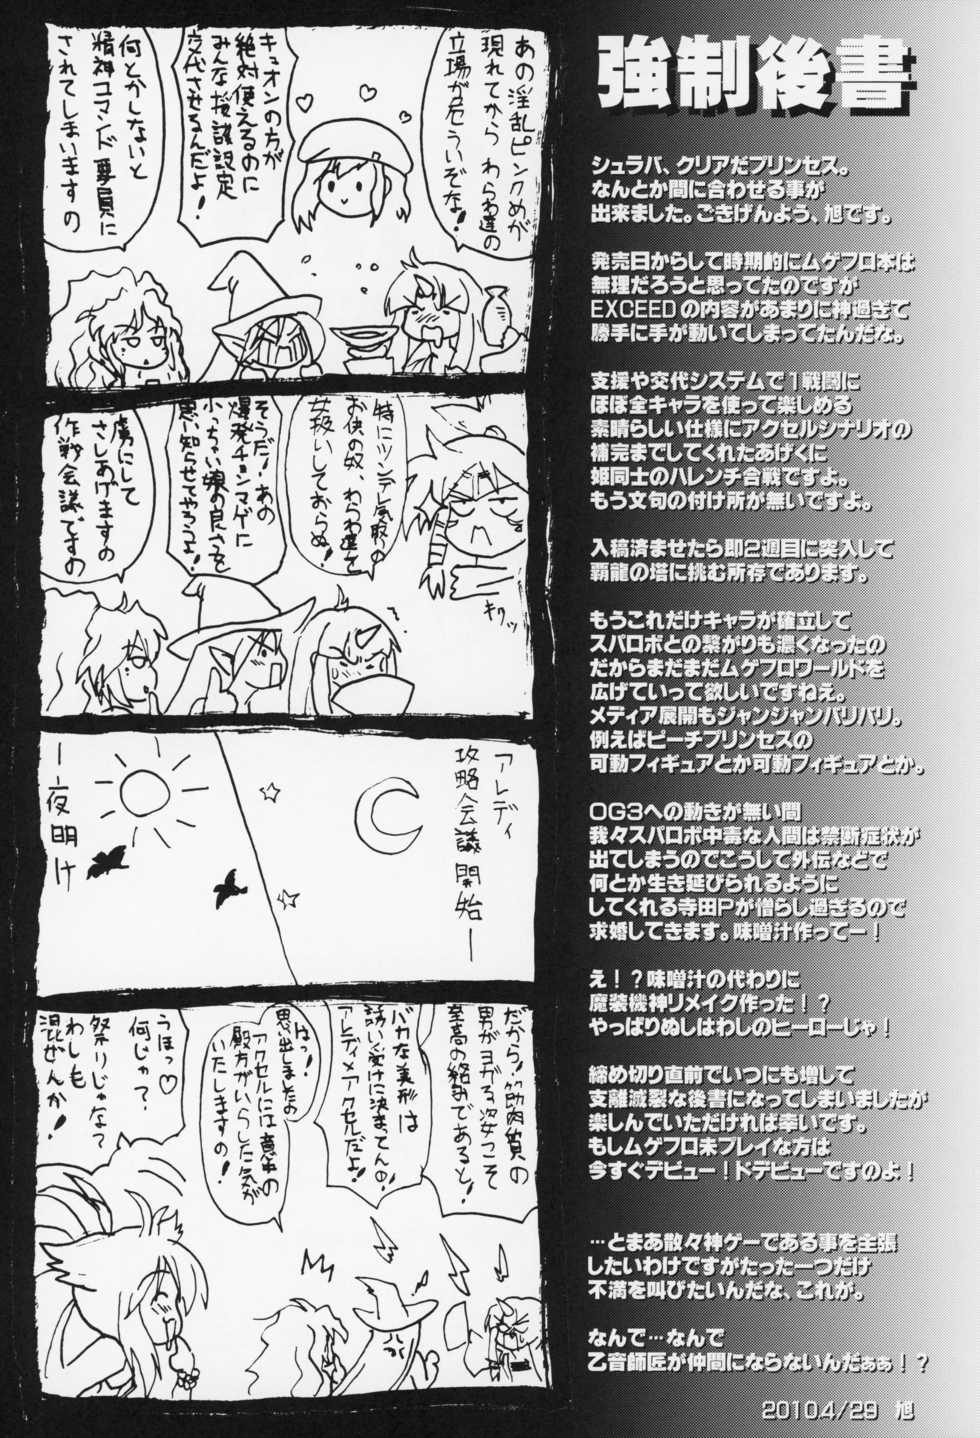 強制後書
シュラバ、クリアだプリンセス。
なんとか間に合わせる事が
出来ました。ごきげんよう、旭です。
発売日からして時期的にムゲフロ本は
無理だろうと思ってたのですが
EXCEEDの内容があまりに神過ぎて
勝手に手が動いてしまってたんだな。
支援や交代システムで1戦闘に
ほぼ全キャラを使って楽しめる
素晴らしい仕様にアクセルシナリオの
補完までしてくれたあげくに
姫同士のハレンチ合戦ですよ。
もう文句の付け所が無いですよ。
入稿済ませたら即2週目に突入して
覇龍の塔に挑む所存であります。
もうこれだけキャラが確立して
スパロボとの繋がりも濃くなったの
だからまだまだムゲフロワールドを
広げていって欲しいですねえ。
メディア展開もジャンジャンバリバリ。
例えばピーチプリンセスの
可動フィギュアとか可動フィギュアとか。
OG3への動きが無い間
我々スパロボ中毒な人間は禁断症状が
出てしまうのでこうして外伝などで
何とか生き延びられるように
してくれる寺田Pが憎らし過ぎるので
求婚してきます。味噌汁作ってー!
え!?味噌汁の代わりに
魔装機神リメイク作った!?
やっぱりぬしはわしのヒーローじゃ!
締め切り直前でいつにも増して
支離滅裂な後書になってしまいましたが
楽しんでいただければ幸いです。
もしムゲフロ未プレイな方は
今すぐデビュー!ドデビューですのよ!
…とまあ散々神ゲーである事を主張
したいわけですがたった一つだけ
不満を叫びたいんだな、これが。
なんで…なんで
乙音師匠が仲間にならないんだぁぁ!?
2010.4/29 旭
あの淫乱ピンクめが
現れてからわらわ達の
立場が危ういぞな!
キュオンの方が
絶対使えるのに
みんな援護設定
交代させるんだよ!
何とかしないと
精神コマンド要員に
されてしまいますの
特にツンデレ気取りの
お侠の奴、わらわ達を
女扱いしておらぬ!
ギクッ
そうだ!あの
爆発チョンマゲに
小っちゃい娘の良さを
思い知らせてやろうよ!
虜にして
さしあげますの
作戦会議ですの
アレディ
攻略会議開始ー
ー夜明け
だから!筋肉質の
男がヨガる姿こそ
至高の絡みであると!
バカな美形は
誘い受けに決まってんの!
アレディ×アクセルだよ!
はっ!
思い出しましたの
アクセルには意中の
殿方がいらした気が
いたしますの!
うほっ♡
何じゃ?
祭りじゃな?
わしも
混ぜんか!